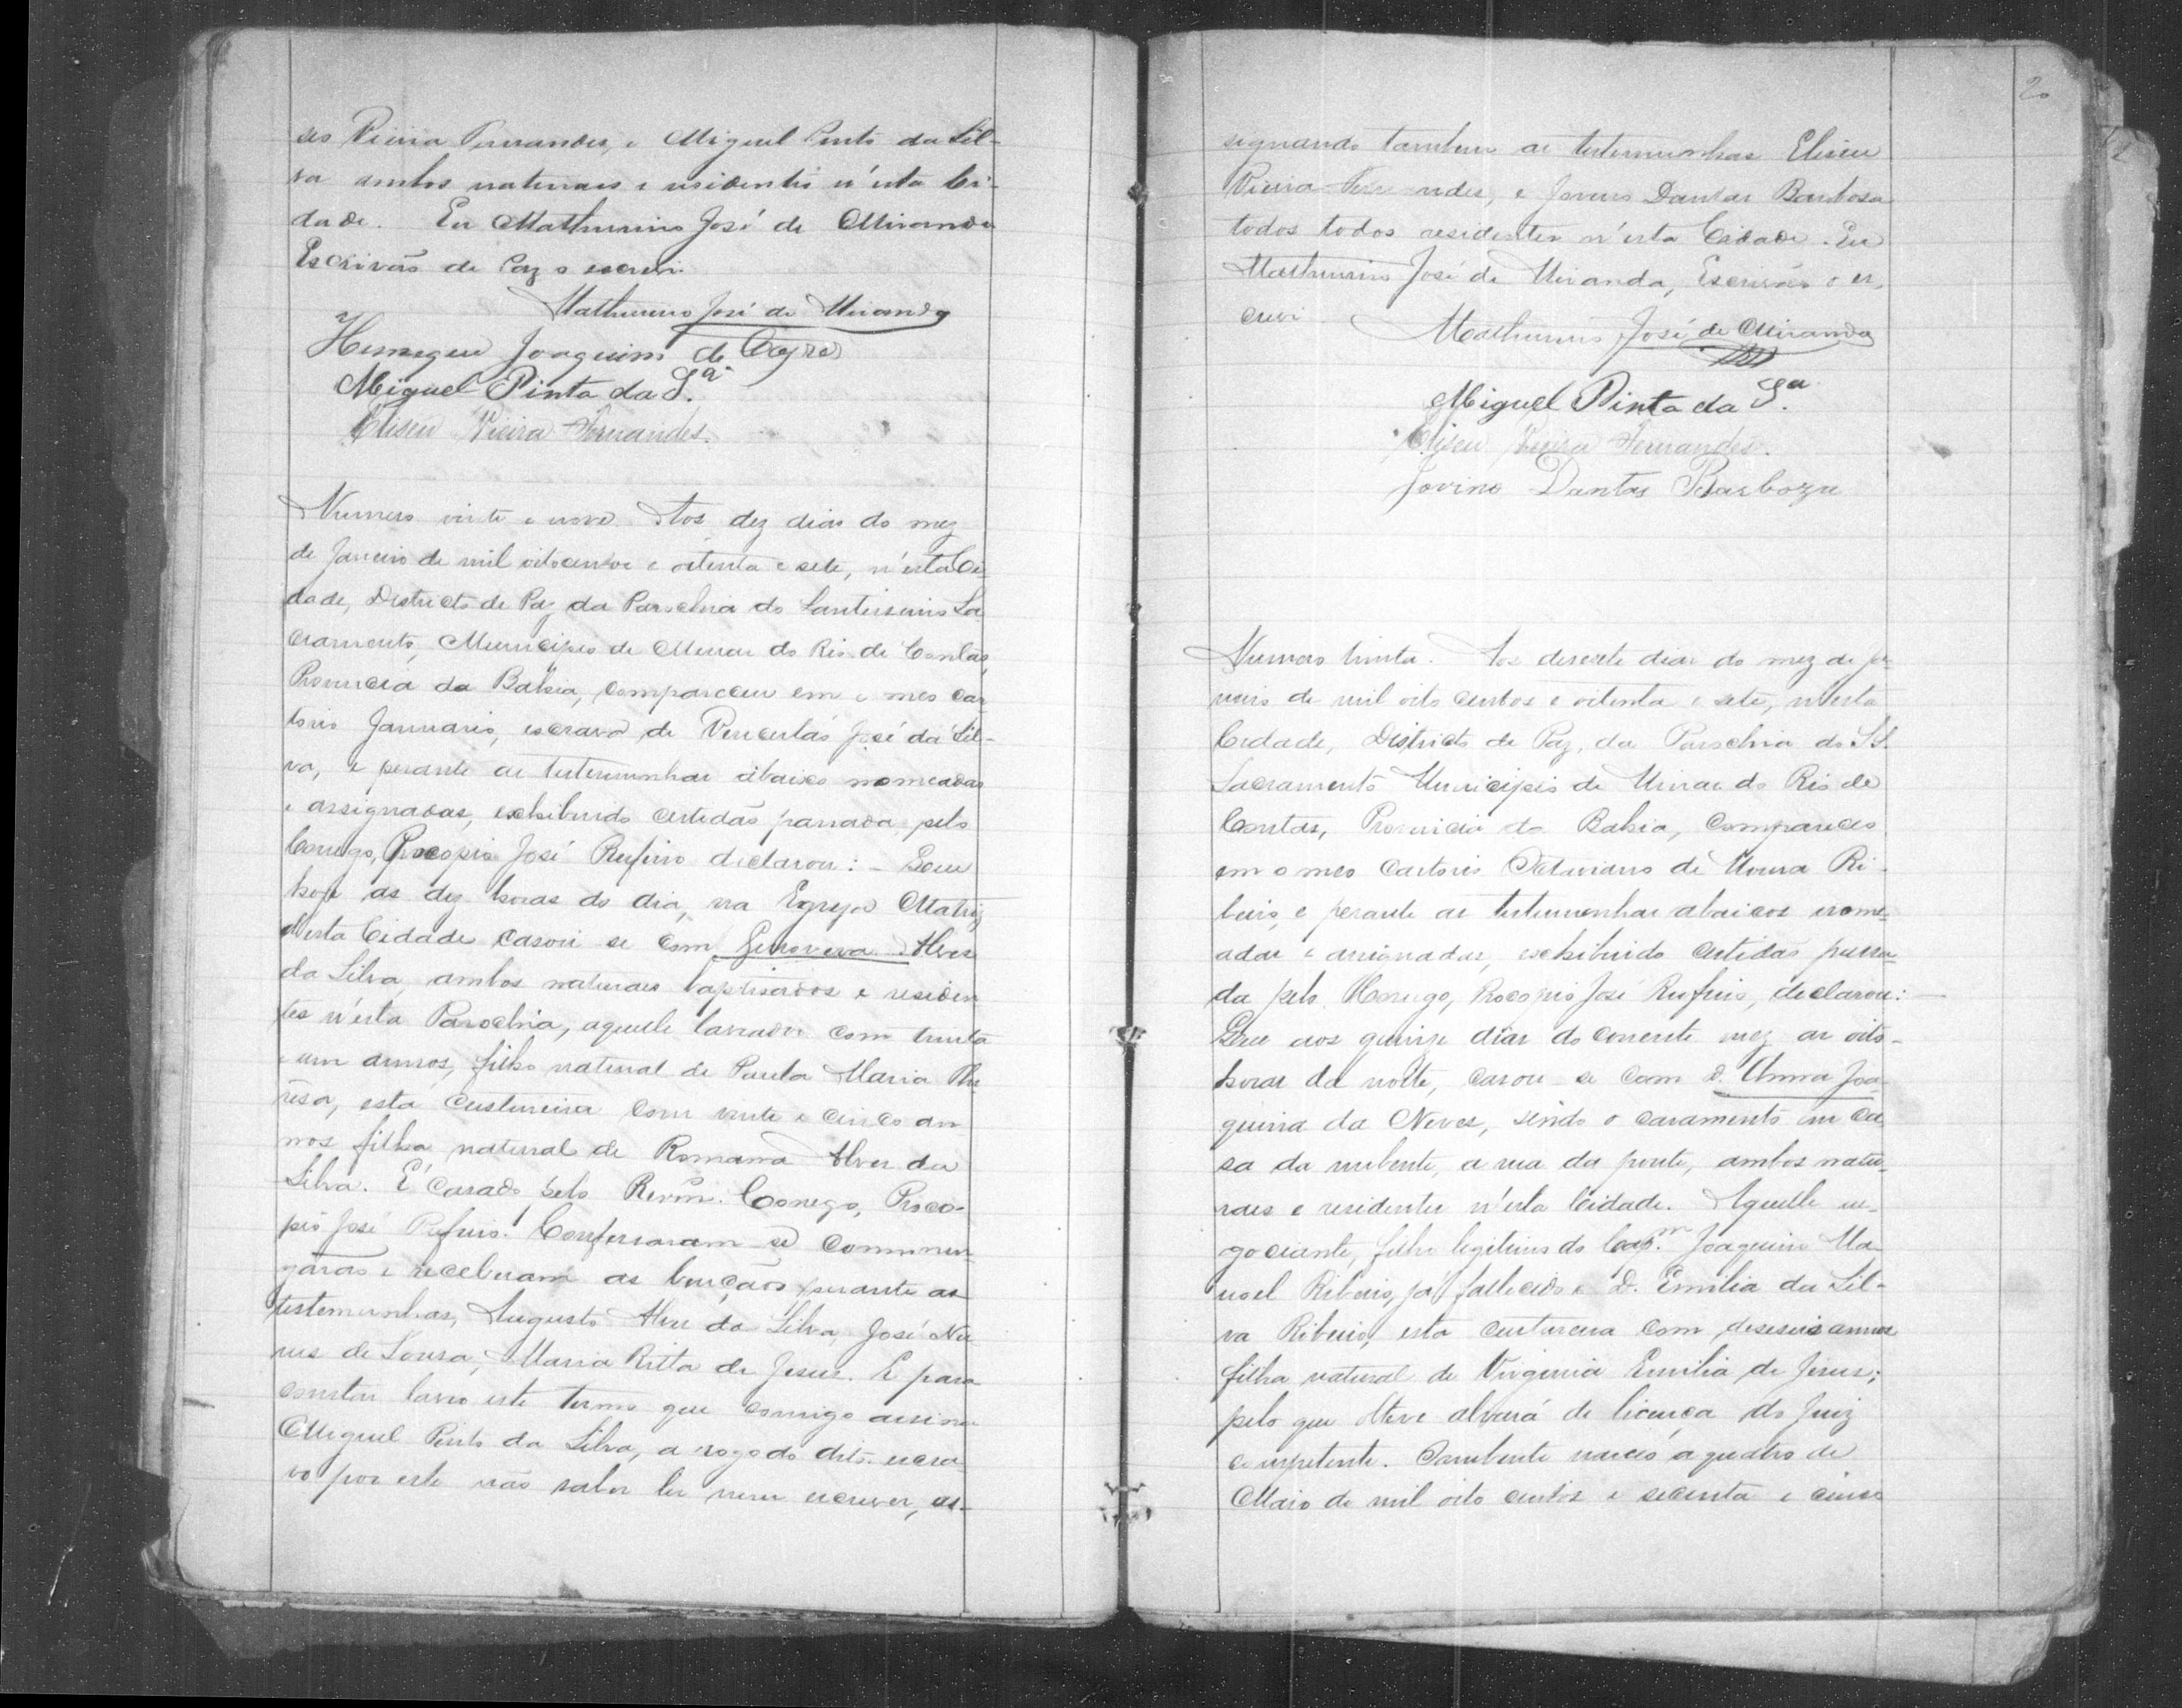 seo Vieira Fernandes, e Miguel Pinto da Sil-
va ambos naturaes e residentes n'esta Ci-
dade. Eu Mathurino José de Miranda
Escrivão de Paz o escrevi.
Mathurino José de Miranda
Joaquim de
Miguel Pinto da S.ª
Eliseu Vieira Fernandes.
Numero vinte e nove. Aos dez dias do mez
de Janeiro de mil oitocentos e oitenta e sete, n'esta Ci-
dade, Districto de Paz da Parochia do Santissimo Sa
cramento, Municipio de Minas do Rio de Contas,
Provincia da Bahia, compareceu em o meo car
torio Januario, escravo de Venceslás José da Sil-
va, e perante as testemunhas abaixo nomeadas
e assignadas, exhibindo certidão passada pelo
Conego, Procopio José Rufino declarou: - Que
hoje as dez horas do dia, na Egreja Matriz
desta Cidade casou se com Genoveva Alves
da Silva, ambos naturaes baptisados e residen
tes n'esta Parochia, aquelle lavrador com trinta
e um annos, filho natural de Paula Maria The
resa, esta custureira com vinte e cinco an
nos filha natural de Romana Alves da
Silva. E' casado pelo Revm. Conego, Proco-
pio José Rufino. Confessaram se commun
garão e receberam as bençãos perante as
testemunhas, Augusto Alves da Silva, José Nu
nes de Sousa, Maria Ritta de Jesus. E para
constar lavro este termo que comigo assina
Miguel Pinto da Silva, a rogo do dito escra
vo por este não saber ler nem escrever, as-
20
signando tambem as testemunhas Eliseu
Vieira Fernandes, e Jovino Dantas Barbosa
todos todos residentes n'esta Cidade. Eu
Mathurino José de Miranda, Escrivão o es
crevi
Mathurino José de Miranda
Miguel Pinto da S.ª
Eliseu Vieira Fernandes.
Jovino Dantas Barboza
Numero trinta. Aos desesete dias do mez de Ja-
neiro de mil oito centos e oitenta e sete, n'esta
Cidade, Districto de Paz, da Parochia do SS.
Sacramento Municipio de Minas do Rio de
Contas, Provincia da Bahia, compareceo
em o meo cartorio Octaviano de Moura Ri-
beiro, e perante as testemunhas abaicos nome-
adas e assignadas, exhibindo certidão passa-
da pelo Conego, Procopio José Rufino, declarou:
Que aos quinze dias do corrente mez as oito
horas da noite, casou se com D. Anna Joa-
quina da Neves, sendo o casamento em ca
sa da nubente, a rua da ponte, ambos natu-
raes e residentes n'esta Cidade. Aquelle ne-
gociante, filho legitimo do Cap.m Joaquim Ma-
noel Ribeiro, já fallecido e D. Emilia da Sil-
va Ribeiro, esta custureira com deseseis annos
filha natural de Virginia Emilia de Jesus;
pelo que obteve alvará de licença do Juiz
competente. O nubente nasceo a quatro de
Maio de mil oito centos e secenta e cinco